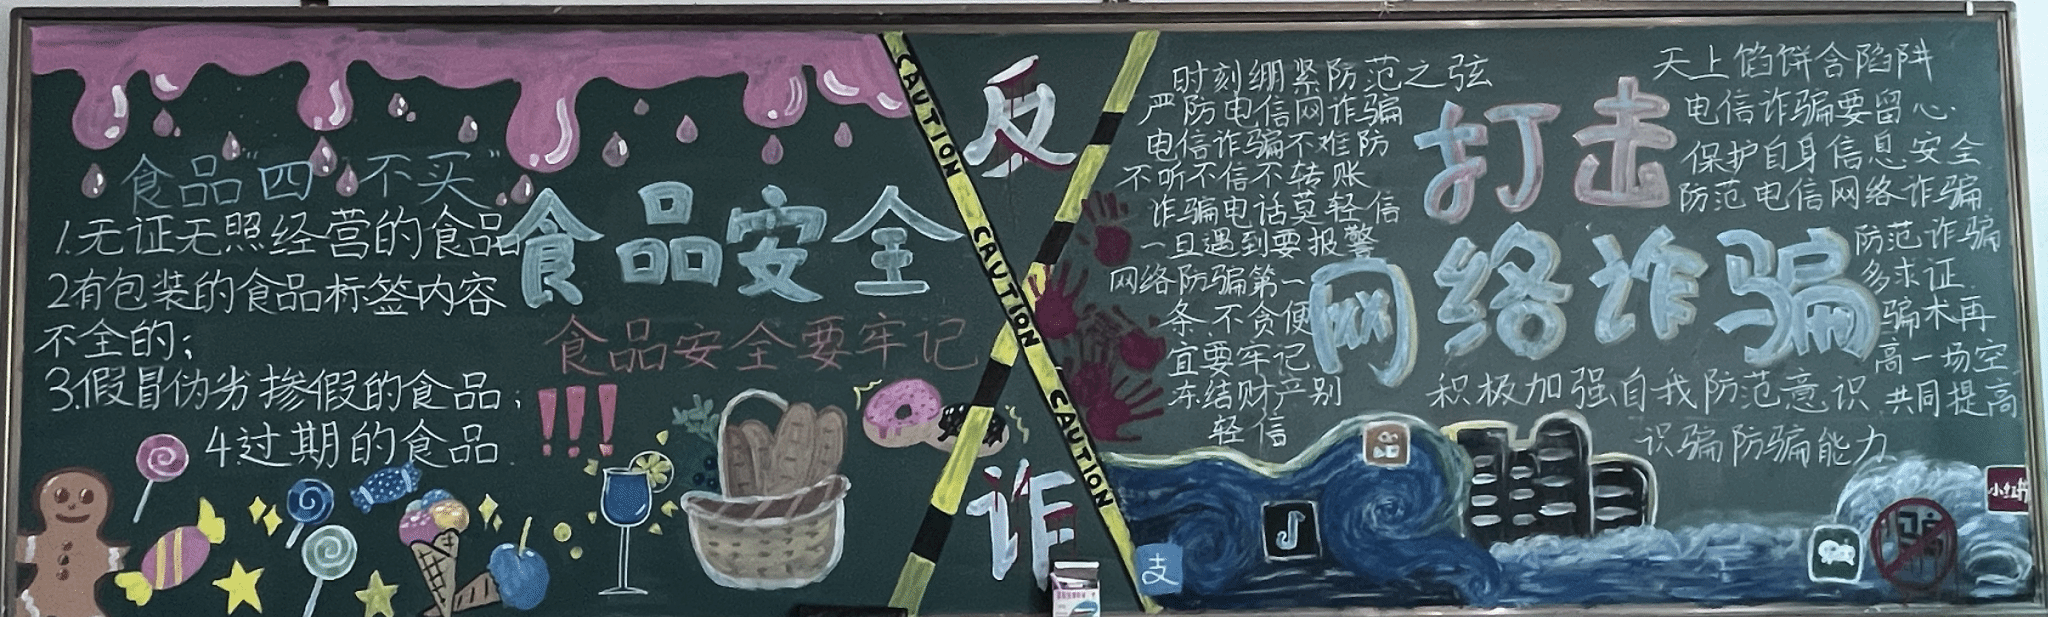 食品“四不买”
1.无证无照经营的食品
2有包装的食品标签内容
不全的;
3.假冒伪劣掺假的食品;
4.过期的食品
食品安全
食品安全要牢记
!!!
CAUTION
CAUTION
CAUTION
反
诈
时刻绷紧防范之弦
严防电信网诈骗
电信诈骗不难防
不听不信不转账
诈骗电话莫轻信
一旦遇到要报警
网络防骗第一
条,不贪便
宜要牢记
冻结财产别
轻信
打击
网络诈骗
天上馅饼含陷阱
电信诈骗要留心
保护自身信息安全
防范电信网络诈骗
防范诈骗
多求证
骗术再
高一场空
积极加强自我防范意识 共同提高
识骗防骗能力
支
小红书
骗